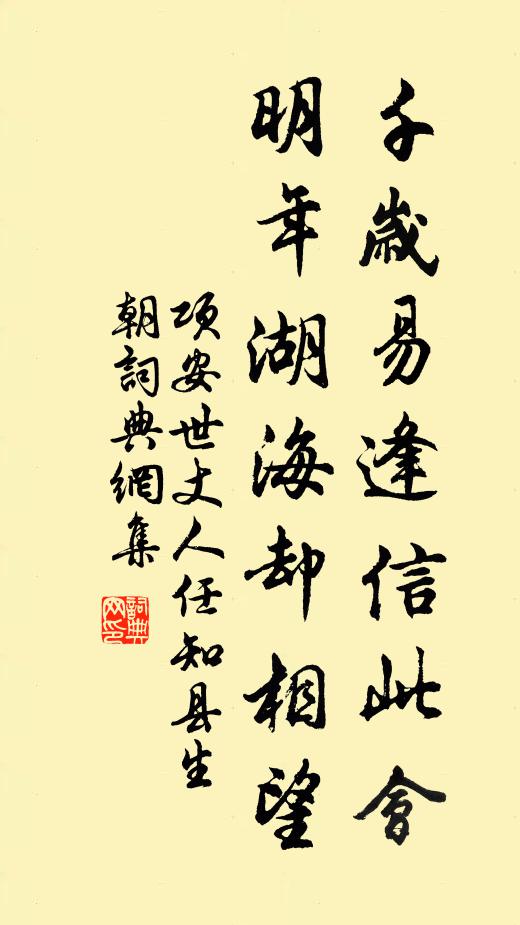 千歲易逢信此會
明年湖海却相望
項安世丈人任知县生
朝詞典網集
詞典
网印